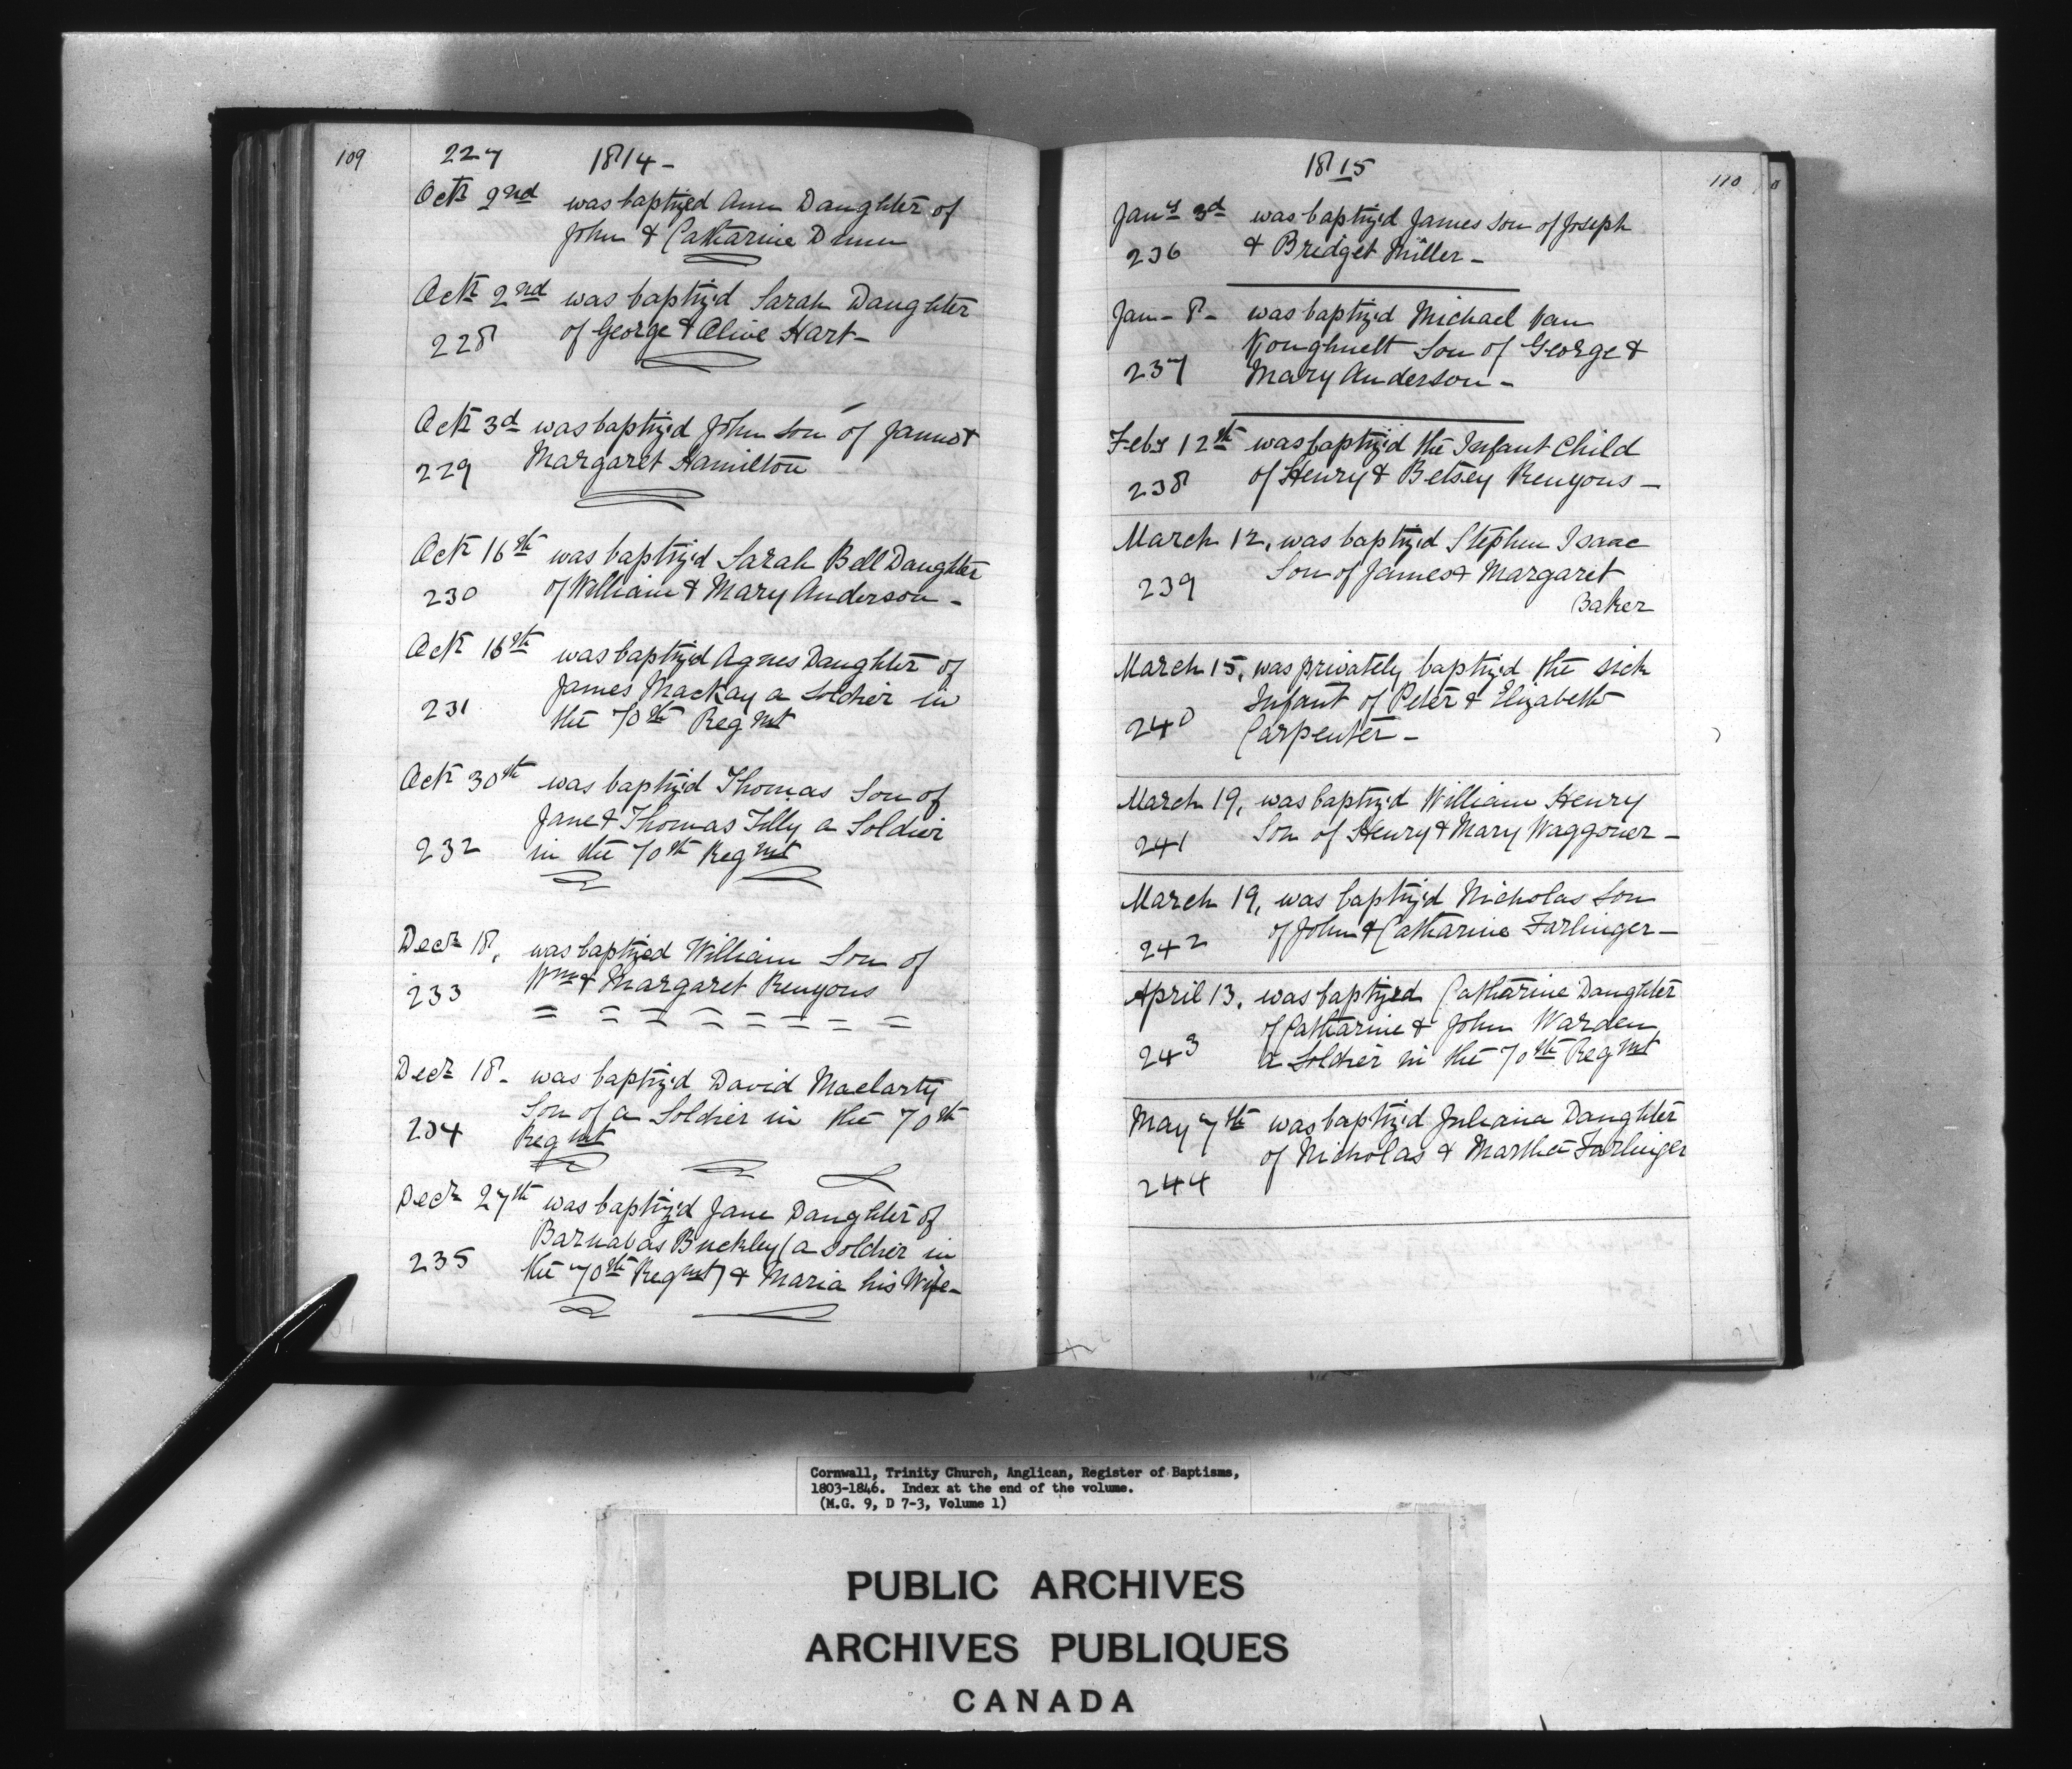 109
227 1814 -
Octr 2nd was baptized Ann Daughter of
John & Catharine Dunn
Octr 2nd was baptiz'd Sarah Daughter
228 of George & Olive Hart -
Octr 3d was baptiz'd John son of James &
229 Margaret Hamilton
Octr 16th was baptiz'd Sarah Bell Daughter
230 of William & Mary Anderson -
Octr 16th was baptiz'd Agnes Daughter of
James MacKay a Soldier in
231 the 70th Regmt
Octr 30th was baptiz'd Thomas Son of
Jane & Thomas Tilly a Soldier
232 in the 70th Regmt
Decr 18, was baptized William Son of
233 Wm & Margaret Runyons
Decr 18 - was baptiz'd David Maclarty
Son of a Soldier in the 70th
234 Regmt
Decr 27th was baptiz'd Jane Daughter of
Barnabas Buckley (a soldier in
235 the 70th Regmt) & Maria his Wife -
1815
110
Jany 3d was baptiz'd James son of Joseph
236 & Bridget Miller -
Jan - 8 - was baptiz'd Michael Van
Koughnett Son of George &
237 Mary Anderson -
Feby 12th was baptiz'd the Infant Child
238 of Henry & Betsey Runyons -
March 12, was baptiz'd Stephen Isaac
239 Son of James & Margaret
Baker
March 15, was privately baptiz'd the sick
Infant of Peter & Elizabeth
240 Carpenter -
March 19, was baptiz'd William Henry
241 Son of Henry & Mary Waggoner -
March 19, was baptiz'd Nicholas Son
242 of John & Catharine Farlinger -
April 13, was baptized Catharine Daughter
of Catharine & John Warden,
243 a Soldier in the 70th Regmt
May 7th was baptiz'd Juliana Daughter
of Nicholas & Martha Farlinger
244
Cornwall, Trinity Church, Anglican, Register of Baptisms,
1803-1846. Index at the end of the volume.
(M.G. 9, D 7-3, Volume 1)
PUBLIC ARCHIVES
ARCHIVES PUBLIQUES
CANADA